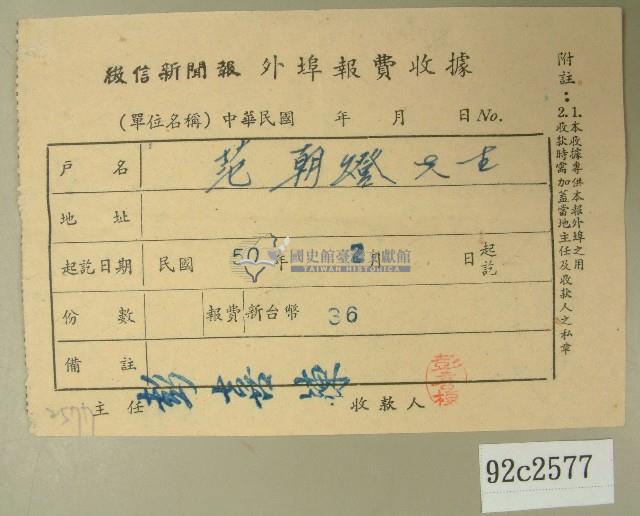 徵信新聞報 外埠報費收據
(單位名稱)中華民國 年 月 日 No.
戶名 范朝燈先生
地址
起訖日期 民國 50年 月 日 起訖
份數 報費 新台幣 36
備註
主任 彭 收款人
附註：
1.本收據專供本報外埠之用
2.收款時需加蓋當地主任及收款人之私章
國史館臺灣文獻館
TAIWAN HISTORICA
2577
92c2577